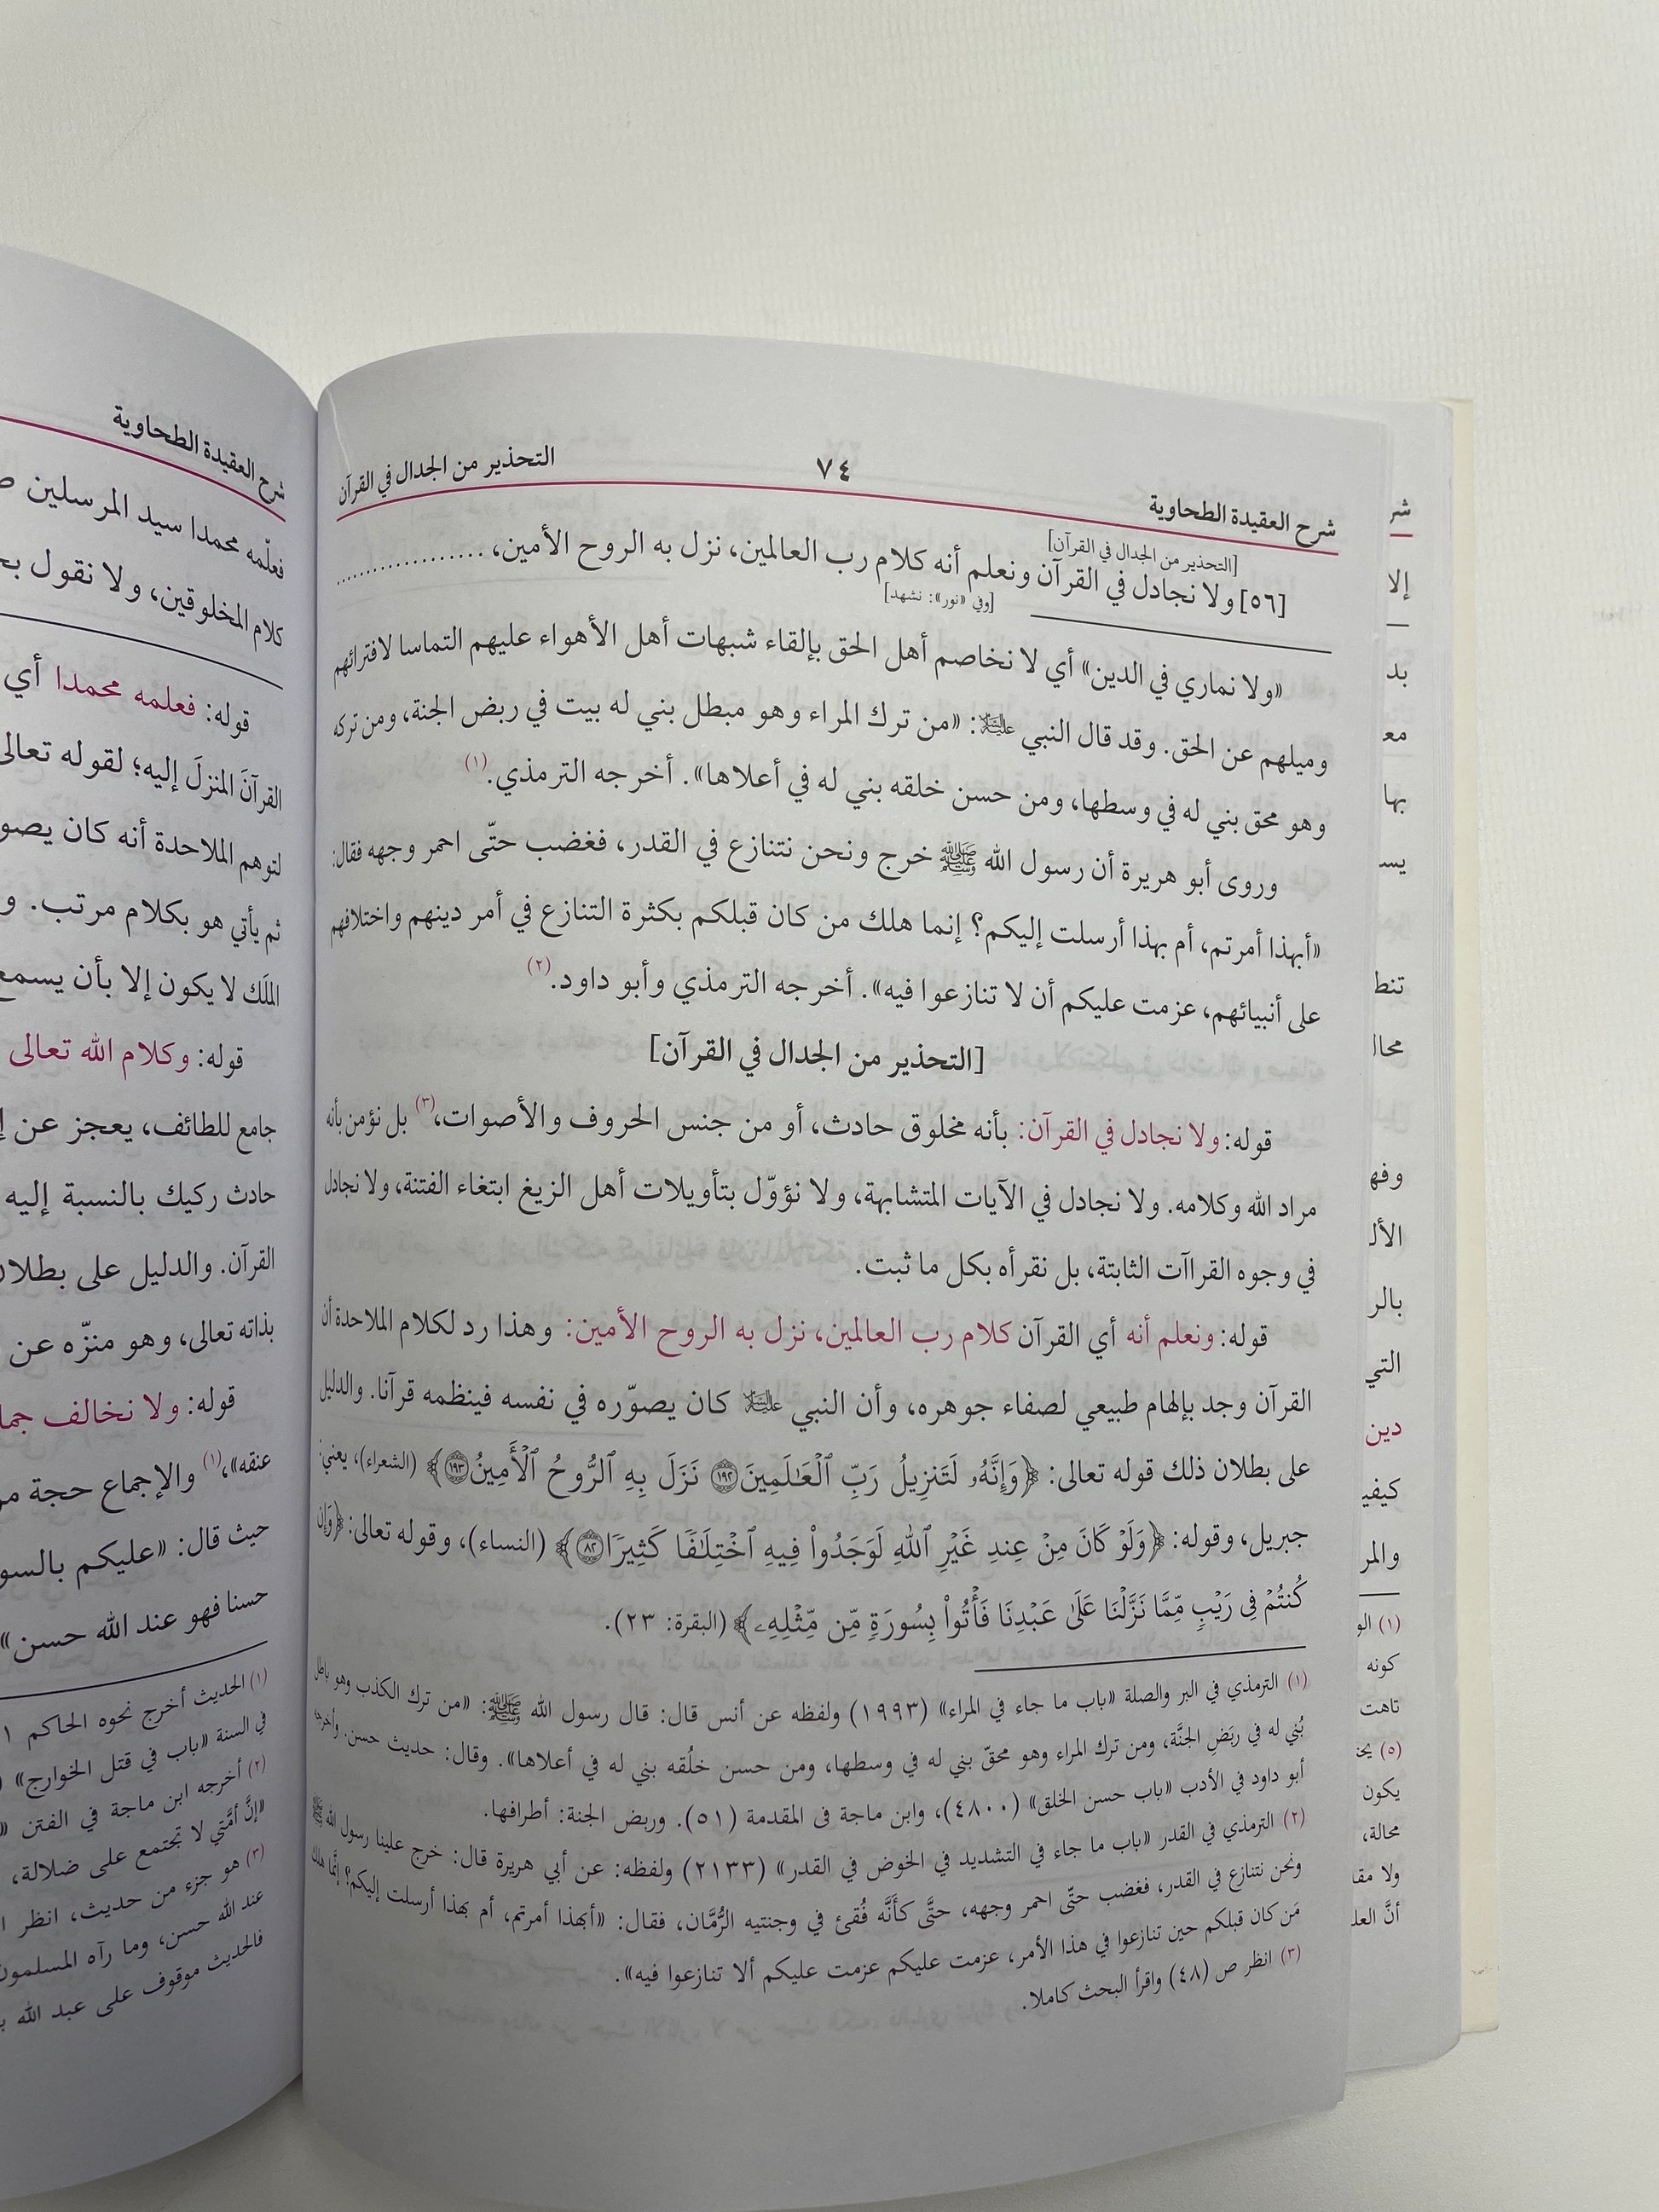 شرح العقيدة الطحاوية ٧٤ التحذير من الجدال في القرآن
[التحذير من الجدال في القرآن]
[٥٦] ولا نجادل في القرآن ونعلم أنه كلام رب العالمين، نزل به الروح الأمين، ..................
[وفي «نور»: نشهد]
«ولا نماري في الدين» أي لا نخاصم أهل الحق بإلقاء شبهات أهل الأهواء عليهم التماسا لافترائهم
وميلهم عن الحق. وقد قال النبي عليه السلام: «من ترك المراء وهو مبطل بني له بيت في ربض الجنة، ومن تركه
وهو محق بني له في وسطها، ومن حسن خلقه بني له في أعلاها». أخرجه الترمذي.(١)
وروى أبو هريرة أن رسول الله ﷺ خرج ونحن نتنازع في القدر، فغضب حتّى احمر وجهه فقال:
«أبهذا أمرتم، أم بهذا أرسلت إليكم؟ إنما هلك من كان قبلكم بكثرة التنازع في أمر دينهم واختلافهم
على أنبيائهم، عزمت عليكم أن لا تنازعوا فيه». أخرجه الترمذي وأبو داود.(٢)
[التحذير من الجدال في القرآن]
قوله: ولا نجادل في القرآن: بأنه مخلوق حادث، أو من جنس الحروف والأصوات،(٣) بل نؤمن بأنه
مراد الله وكلامه. ولا نجادل في الآيات المتشابهة، ولا نؤوّل بتأويلات أهل الزيغ ابتغاء الفتنة، ولا نجادل
في وجوه القراآت الثابتة، بل نقرأه بكل ما ثبت.
قوله: ونعلم أنه أي القرآن كلام رب العالمين، نزل به الروح الأمين: وهذا رد لكلام الملاحدة أن
القرآن وجد بإلهام طبيعي لصفاء جوهره، وأن النبي عليه السلام كان يصوّره في نفسه فينظمه قرآنا. والدليل
على بطلان ذلك قوله تعالى: ﴿وَإِنَّهُۥ لَتَنزِيلُ رَبِّ ٱلْعَٰلَمِينَ ١٩٢ نَزَلَ بِهِ ٱلرُّوحُ ٱلْأَمِينُ ١٩٣﴾ (الشعراء)، يعني:
جبريل، وقوله: ﴿وَلَوْ كَانَ مِنْ عِندِ غَيْرِ ٱللَّهِ لَوَجَدُوا۟ فِيهِ ٱخْتِلَٰفًا كَثِيرًا ٨٢﴾ (النساء)، وقوله تعالى: ﴿وَإِن
كُنتُمْ فِى رَيْبٍ مِّمَّا نَزَّلْنَا عَلَىٰ عَبْدِنَا فَأْتُوا۟ بِسُورَةٍ مِّن مِّثْلِهِۦ﴾ (البقرة: ٢٣).
(١) الترمذي في البر والصلة «باب ما جاء في المراء» (١٩٩٣) ولفظه عن أنس قال: قال رسول الله ﷺ: «من ترك الكذب وهو باطل
بُني له في ربَضِ الجنَّة، ومن ترك المراء وهو محقّ بني له في وسطها، ومن حسن خلُقه بني له في أعلاها». وقال: حديث حسن. وأخرجه
أبو داود في الأدب «باب حسن الخلق» (٤٨٠٠)، وابن ماجة فى المقدمة (٥١). وربض الجنة: أطرافها.
(٢) الترمذي في القدر «باب ما جاء في التشديد في الخوض في القدر» (٢١٣٣) ولفظه: عن أبي هريرة قال: خرج علينا رسول الله ﷺ
ونحن نتنازع في القدر، فغضب حتّى احمر وجهه، حتَّى كأنَّه فُقئ في وجنتيه الرُّمَّان، فقال: «أبهذا أمرتم، أم بهذا أرسلت إليكم؟ إنَّما هلك
مَن كان قبلكم حين تنازعوا في هذا الأمر، عزمت عليكم عزمت عليكم ألا تنازعوا فيه».
(٣) انظر ص (٤٨) واقرأ البحث كاملا.
شرح العقيدة الطحاوية
فعلّمه محمدا سيد المرسلين
كلام المخلوقين، ولا نقول
قوله: فعلمه محمدا أي
القرآنَ المنزلَ إليه؛ لقوله تعالى
لتوهم الملاحدة أنه كان
ثم يأتي هو بكلام مرتب.
الملَك لا يكون إلا بأن
قوله: وكلام الله تعالى
جامع للطائف، يعجز عن
حادث ركيك بالنسبة إليه
القرآن. والدليل على
بذاته تعالى، وهو منزّه عن
قوله: ولا نخالف
عنقه»،(١) والإجماع حجة
حيث قال: «عليكم
حسنا فهو عند الله حسن»
(١) الحديث أخرج نحوه الحاكم
في السنة «باب في قتل الخوارج»
(٢) أخرجه ابن ماجة في الفتن
«إنَّ أمَّتي لا تجتمع على ضلالة،
(٣) هو جزء من حديث، انظر
عند الله حسن، وما رآه المسلمون
فالحديث موقوف على عبد الله